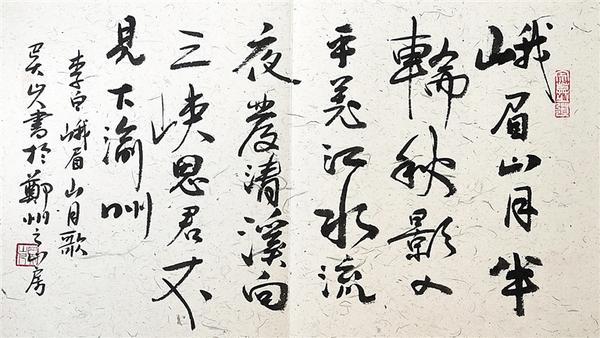 峨眉山月半
輪秋影入
平羌江水流
夜發清溪向
三峽思君不
見下渝州
李白峨眉山月歌
書於鄭州之房